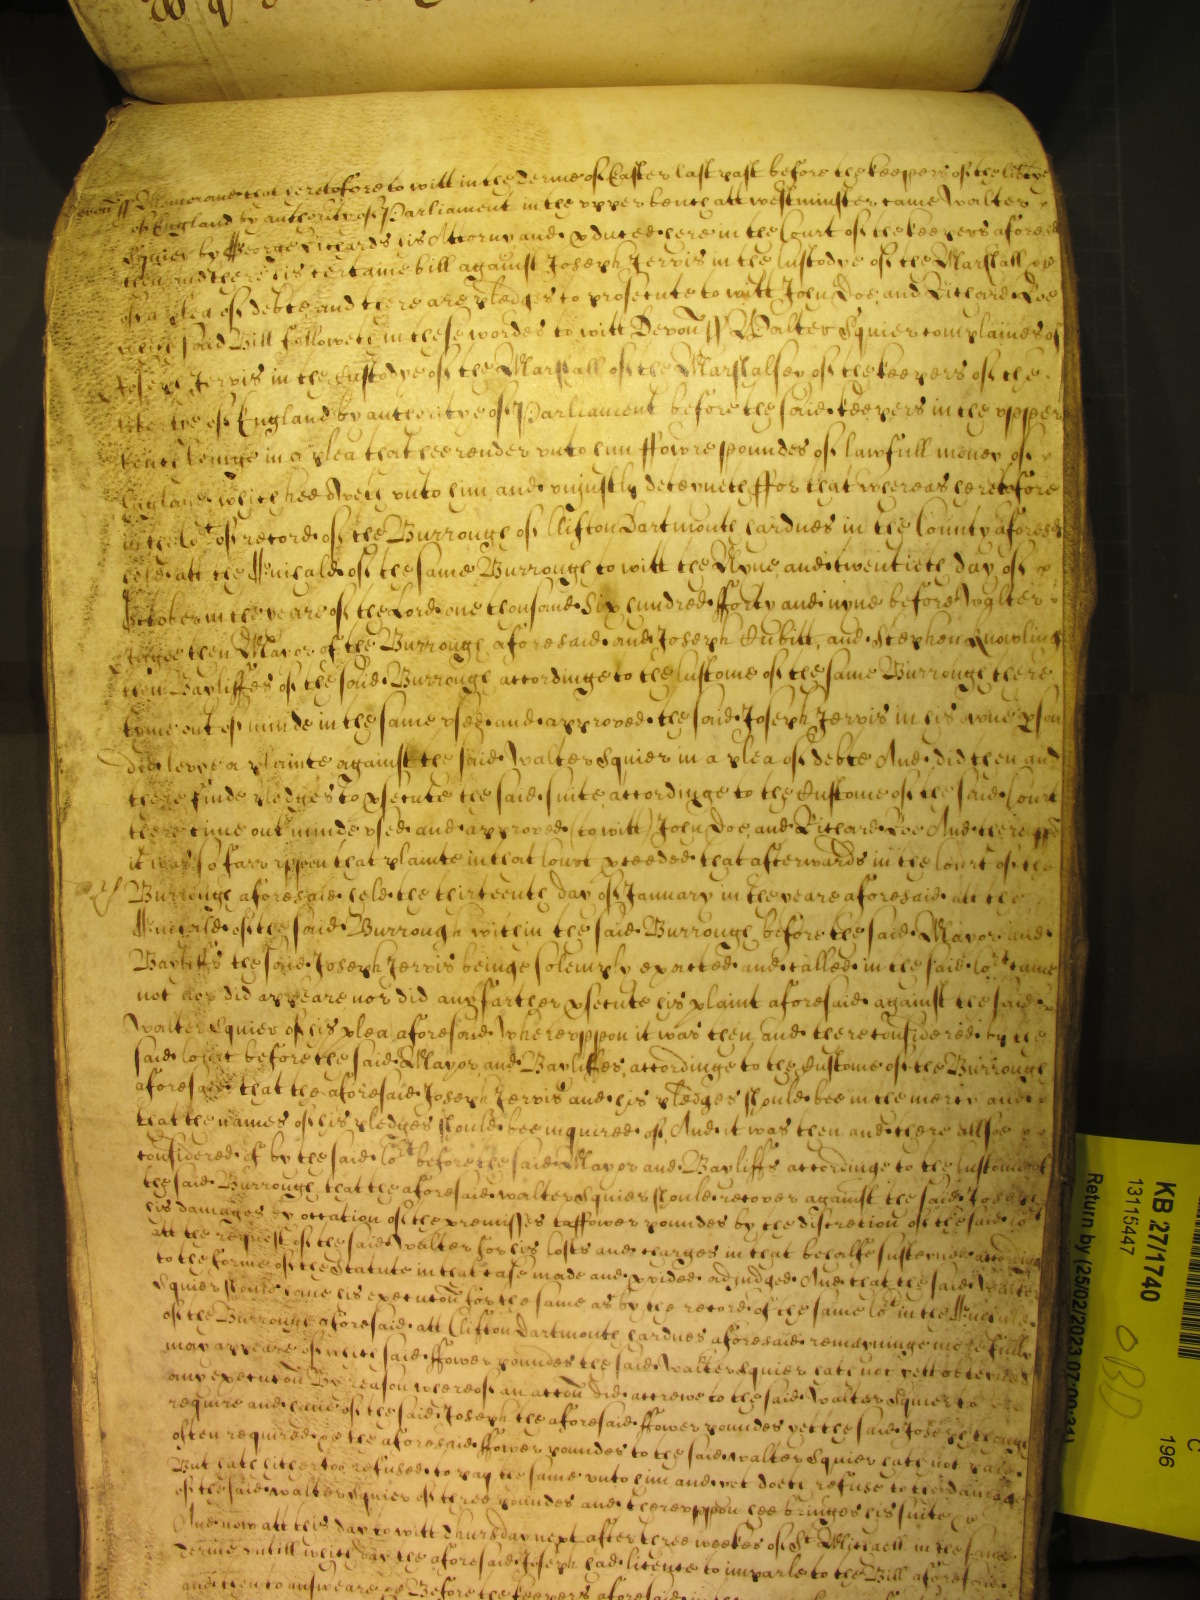 Devon ss Memorand that heretofore to witt in the Terme of Easter last past before the keepers of the libtye
of England by authority of Parliament in the upper bench att westminster came Walter
Squier by George Richards his Attorny and pduced here in the Court of the keepers aforesd
then and there his certaine bill against Joseph Jervis in the Custodye of the Marshall &c
of a plea of debte and there are pledges to prosecute to witt John Doe and Richard Roe
which said Bill followeth in these wordes to witt Devon ss Walter Squier complaines of
Joseph Jervis in the Custodye of the Marshall of the Marshalsey of the keepers of the
libertye of England by authoritye of Parliament before the said keepers in the upper
bench beinge in a plea that hee render unto him ffowre poundes of lawfull money of
England which hee oweth unto him and uniustly deteyneth ffor that whereas heretofore
in the Cot of record of the Burrough of Clifton Dartmouth hardnes in the County aforesd
held att the Guihald of the same Burrough to witt the Nyne and twentieth day of
October in the yeare of the Lord one thousand six hundred fforty and nyne before Walter
then Mayor of the Burrough aforesaid and Joseph Cubitt, and Stephen Knowling
then Bayliffes of the said Burrough accordinge to the Custome of the same Burrough there
tyme out of minde in the same used and approved the said Joseph Jervis in his owne pson
did levye a plainte against the said Walter Squier in a plea of debte And did then and
there finde pledges to psecute the said suite accordinge to the Custome of the said Court
there time out minde used and approved (to witt) John Doe and Richard Roe And thereupp
it was so farr uppon that plainte in that Court pceeded that afterwards in the Court of the
Burrough aforesaid held the thirteenth day of January in the yeare aforesaid att the
Guihald of the said Burrough within the said Burrough before the said Mayor and
Bayliffs the said Joseph Jervis beinge solemply exacted and called in the said Cort came
not nor did appeare nor did any farther psecute his plaint aforesaid against the said
Walter Squier of his plea aforesaid Whereuppon it was then and there considered by the
said Court before the said Mayor and Bayliffes accordinge to the Custome of the Burrough
aforesaid that the aforesaid Joseph Jervis and his pledges should bee in the mercy and
that the names of his pledges should bee inquired of And it was then and there allsoe
considered of by the said Cort before the said Mayor and Bayliffs accordinge to the Custome of
the said Burrough that the aforesaid Walter Squier should recover against the said Joseph
his damages by occation of the premisses to ffower poundes by the discretion of the said Cort
att the request of the said Walter for his Costs and charges in that behalfe susteyned accordinge
to the forme of the Statute in that case made and pvided adjudged And that the said Walter
Squier should have his execucon for the same as by the record of the same Cort in the Guihald
of the Burrough aforesaid att Clifton Dartmouth hardnes aforesaid remayninge more fully
may appeare of which said ffower poundes the said Walter Squier hath not yett obteyned
any execucon By reason whereof an accon did accrewe to the said Walter Squier to
require and have of the said Joseph the aforesaid ffower poundes yet the said Joseph though
often required &c the aforesaid ffower poundes to the said Walter Squier hath not paid
But hath hitherto refused to pay the same unto him and yet doeth refuse to the damage
of the said Walter Squier of three poundes and thereuppon hee bringes his suite &c
And now att this day to witt Thursday next after three weekes of St Michaell in the same
Terme untill which day the aforesaid Joseph had licence to imparle to the Bill aforesaid
and then to answeare &c Before the keepers aforesaid
KB 27/1740
13115447
Return by (25/02/2023 07:00:21)
196
C